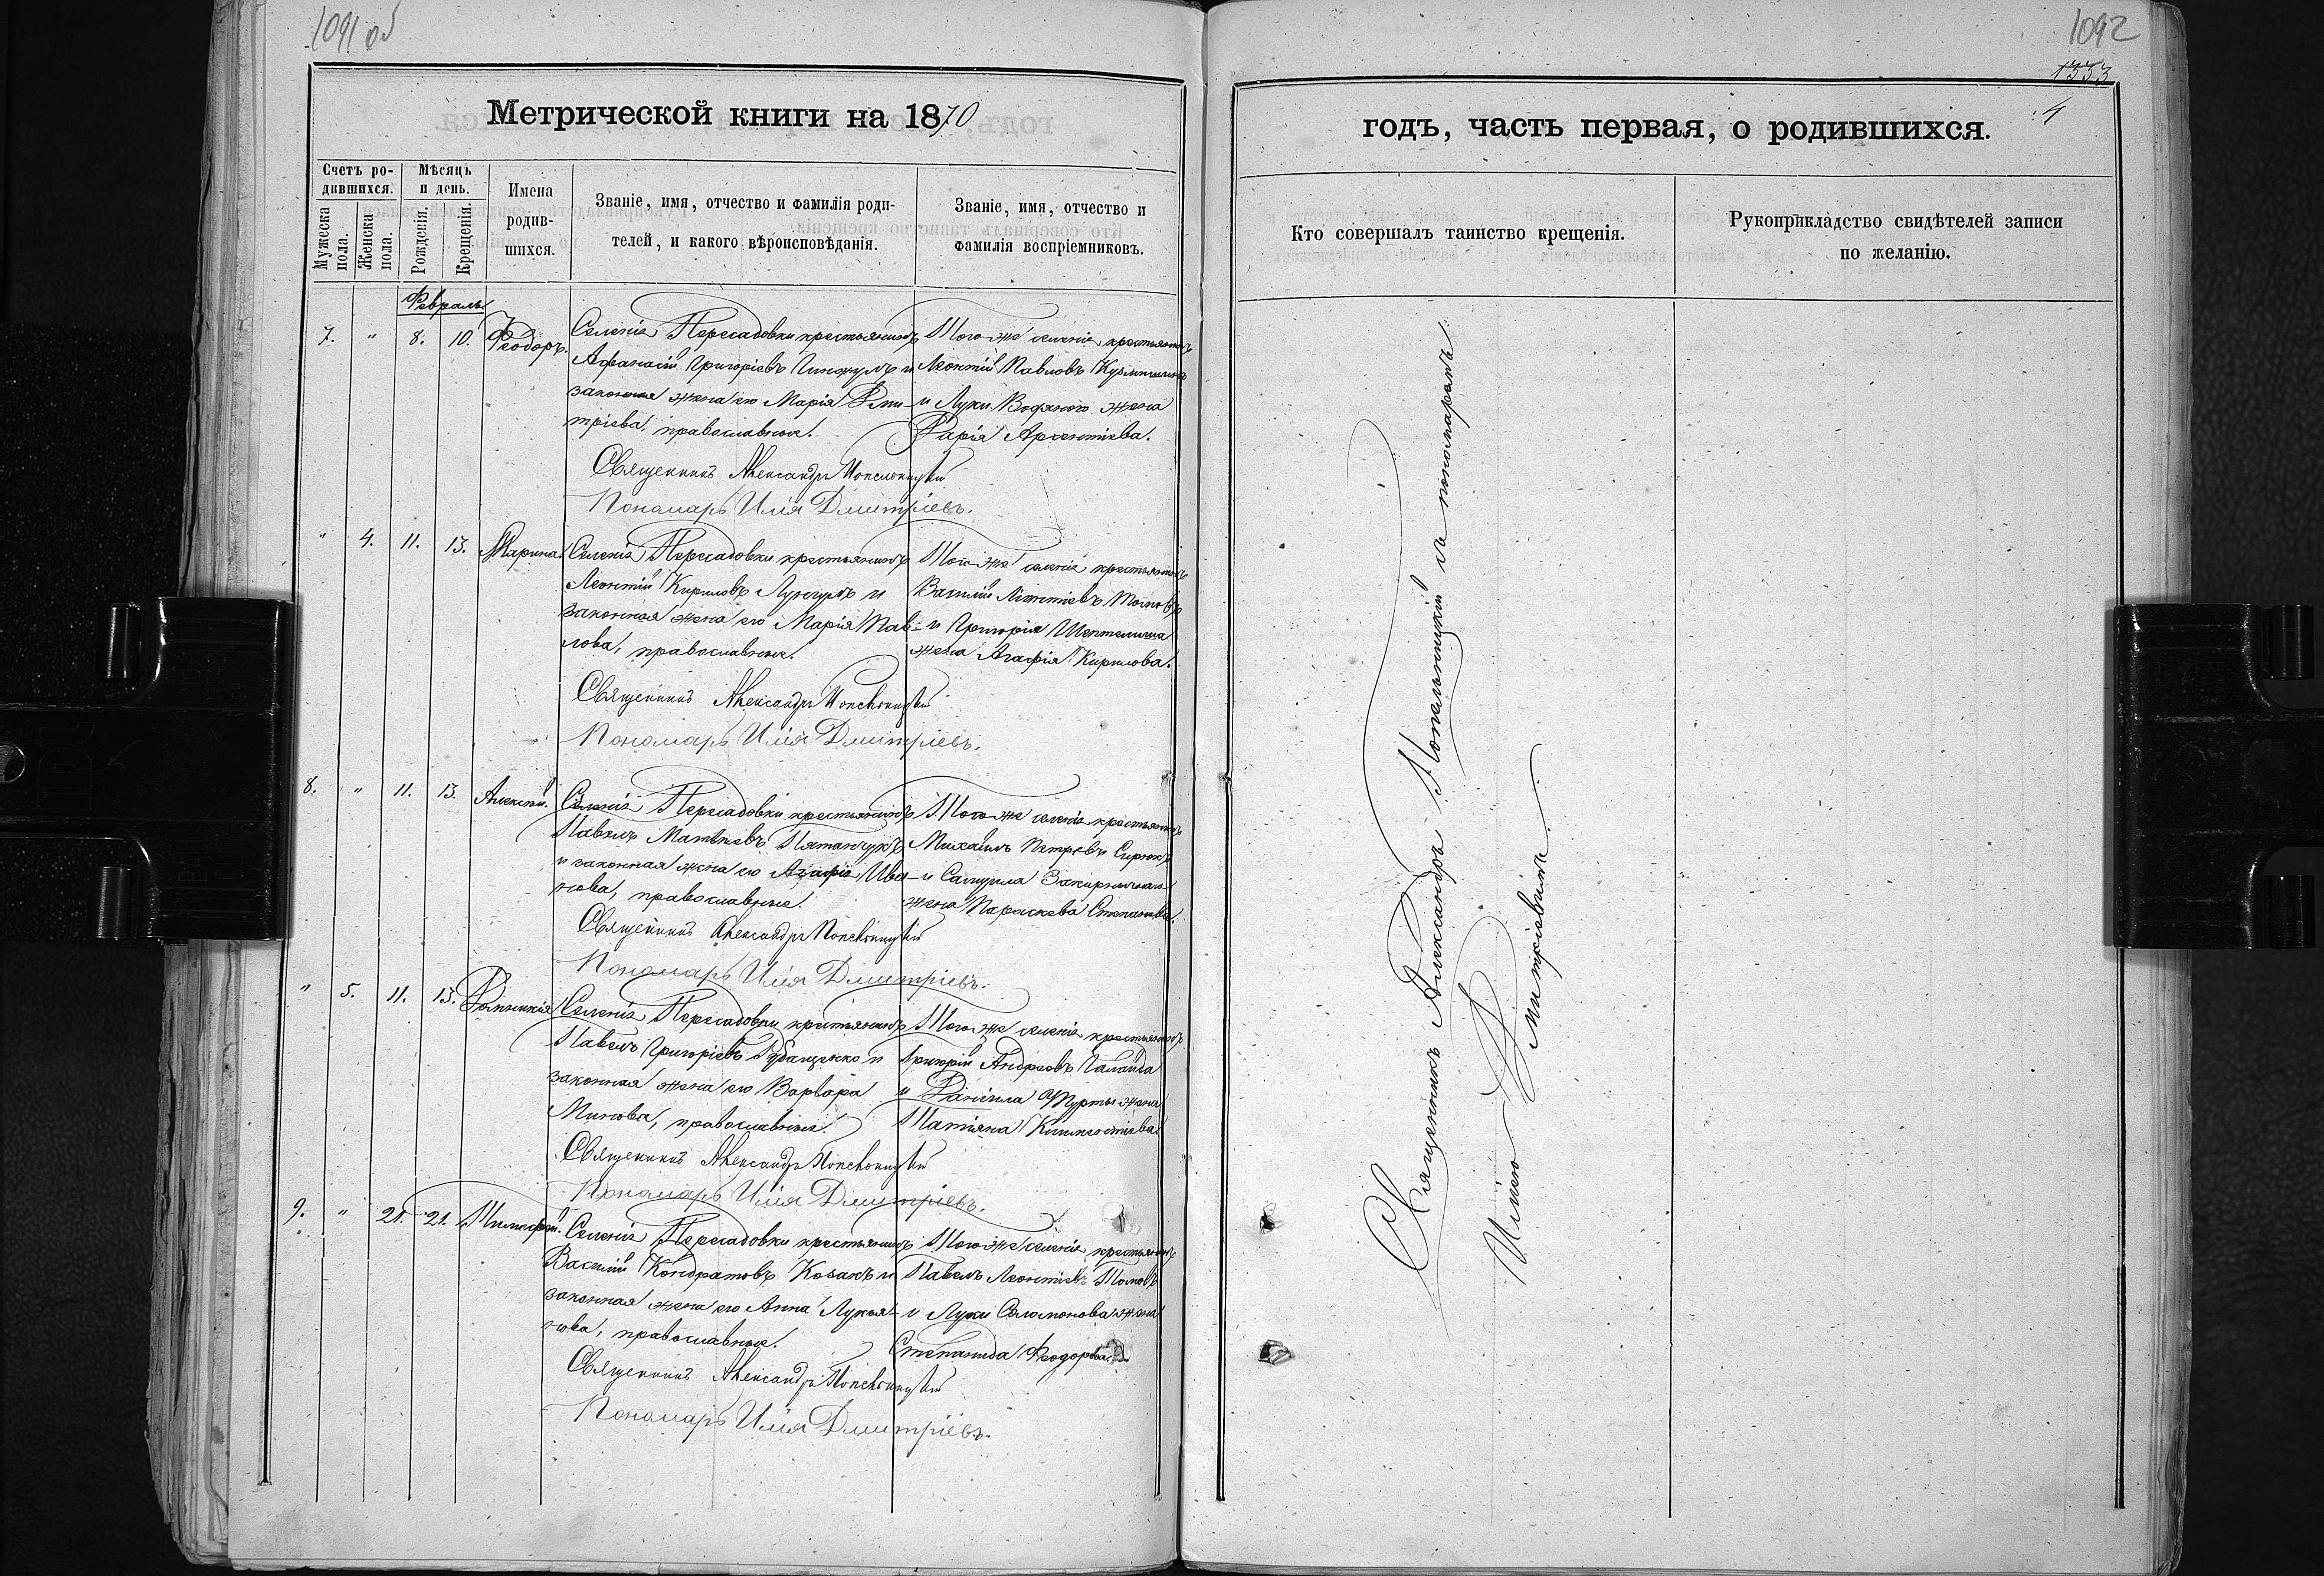 1091 об
Метрической книги на 1870
Счетъ ро-
дившихся.
Мужеска пола.
Женска пола.
Мѣсяцъ
и день.
Рожденія.
Крещенія.
Имена
родив-
шихся.
Званіе, имя, отчество и фамилія роди-
телей, и какого вѣроисповѣданія.
Званіе, имя, отчество и
фамилія воспріемниковъ.
Февраль
7. " 8. 10. Феодоръ.
Селенія Пересадовки крестьянинъ
Афанасій Григоріевъ и
законная жена его Марія Дми-
тріева, православные.
Того же селенія крестьянинъ
Леонтій Павловъ
и Луки Водяного жена
Дарія Арсентіева.
Священникъ Александръ
Пономарь Илія Дмитріевъ.
" 4. 11. 13. Марина.
Селенія Пересадовки крестьянинъ
Леонтій Кириловъ и
законная жена его Марія Пав-
лова, православные.
Того же селенія крестьянинъ
Василій
и Григорія
жена Агафія Кирилова.
Священникъ Александръ
Пономарь Илія Дмитріевъ.
8. " 11. 13. Алексій.
Селенія Пересадовки крестьянинъ
Павелъ Матвѣевъ
и законная жена его Агафія Ива-
нова, православные.
Того же селенія крестьянинъ
Михаилъ Петровъ
и Самуила
жена Параскева Степанова.
Священникъ Александръ
Пономарь Илія Дмитріевъ.
" 5. 11. 13.
Селенія Пересадовки крестьянинъ
Павелъ Григоріевъ и
законная жена его Варвара
Минова, православные.
Того же селенія крестьянинъ
Григорій Андреевъ
и Даніила жена
Татіана
Священникъ Александръ
Пономарь Илія Дмитріевъ.
9. " 21. 21. Тимофей.
Селенія Пересадовки крестьянинъ
Василій Кондратовъ Козакъ и
законная жена его Анна Лукья-
нова, православные.
Того же селенія крестьянинъ
Павелъ Леонтіевъ
и Луки Соломонова жена
Степанида Феодорова
Священникъ Александръ
Пономарь Илія Дмитріевъ.
1092
1333
4
годъ, часть первая, о родившихся.
Кто совершалъ таинство крещенія.
Рукоприкладство свидѣтелей записи
по желанію.
Священникъ Александръ съ пономаремъ
Иліею Дмитріевымъ.